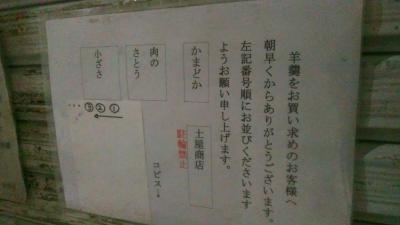 羊羹をお買い求めのお客様へ
朝早くからありがとうございます。
左記番号順にお並びくださいます
ようお願い申し上げます。
かまどか
土屋商店
駐輪禁止
肉の
さとう
コピス→
小ざさ
①②③…
←